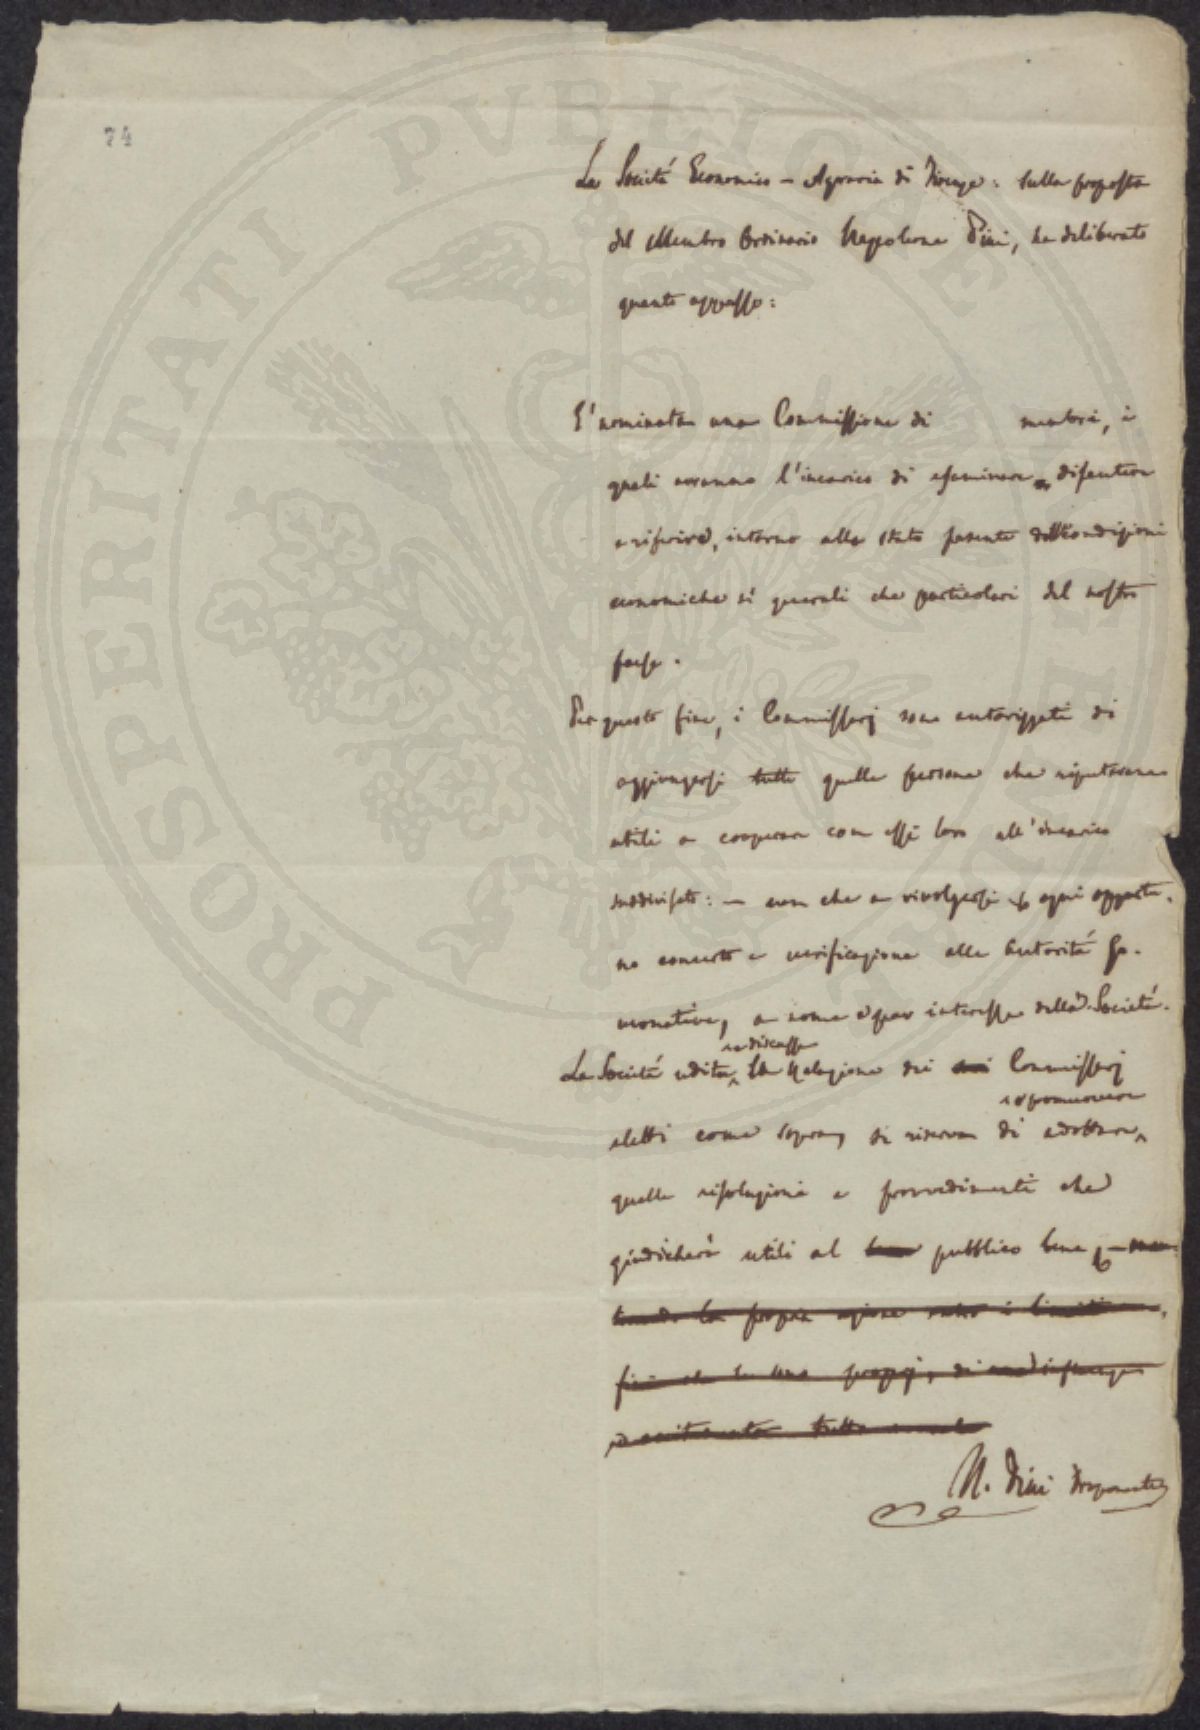 74
La Società Economico - Agraria di Firenze: sulla proposta
del Membro Ordinario Napoleone Pini, ha deliberato
quanto appresso:
E' nominata una Commissione di membri, i
quali avranno l'incarico di esaminare, discutere
e riferire, intorno allo stato presente delle condizioni
economiche sì generali che particolari del nostro
paese.
Per questo fine, i Commissarj sono autorizzati di
aggiungersi tutte quelle persone che reputeranno
utili a cooperare con essi loro all'incarico
suddivisato: – non che a rivolgersi p ogni opportu-
no concerto e verificazione alle Autorità Go-
vernative, a nome e per interesse della Società.
e discussa
La Società udita, la Relazione dei Commissarj
e promuovere
eletti come sopra, si riserva di adottare,
quelle risoluzioni e provvedimenti che
giudicherà utili al pubblico bene
la propria azione entro i limiti
N. Pini Proponente
PROSPERITATI PVBLICAE